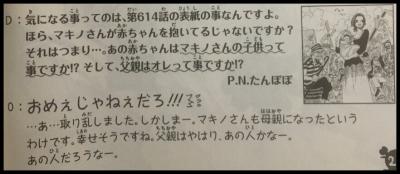 D：気になる事ってのは、第614話の表紙の事なんですよ。
ほら、マキノさんが赤ちゃんを抱いてるじゃないですか？
それはつまり…。あの赤ちゃんはマキノさんの子供って
事ですか!? そして、父親はオレって事ですか!?
P.N.たんぽぽ
O：おめェじゃねェだろ!!!
…あ…取り乱しました。しかしまー。マキノさんも母親になったという
わけです。幸せそうですね。父親はやはり、あの人かなー。
あの人だろうなー。
2